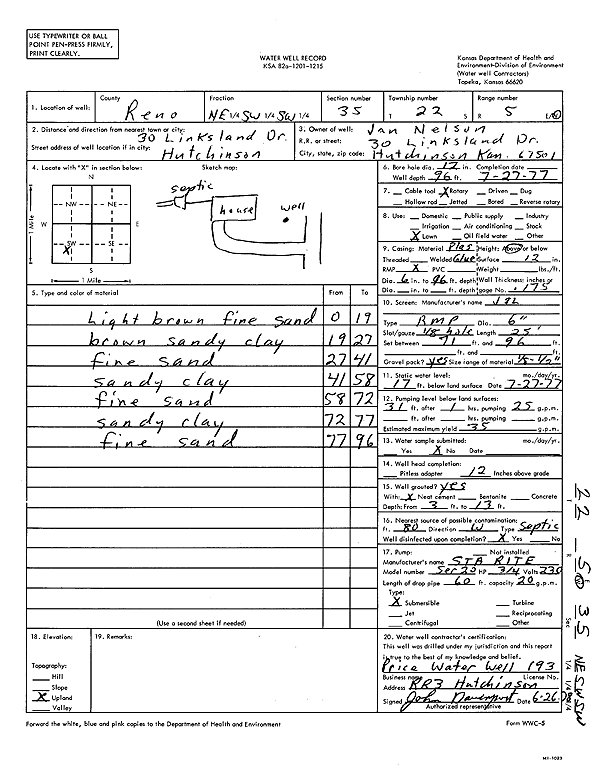 USE TYPEWRITER OR BALL
POINT PEN-PRESS FIRMLY,
PRINT CLEARLY.
WATER WELL RECORD
KSA 82a-1201-1215
Kansas Department of Health and
Environment-Division of Environment
(Water well Contractors)
Topeka, Kansas 66620
1. Location of well: County Reno Fraction NE 1/4 SW 1/4 SW 1/4 Section number 35 Township number T 22 S Range number R 5 E/W
2. Distance and direction from nearest town or city: 30 Linksland Dr.
Street address of well location if in city: Hutchinson
3. Owner of well: Jan Nelson
R.R. or street: 30 Linksland Dr.
City, state, zip code: Hutchinson Kan. 67501
4. Locate with "X" in section below: Sketch map:
N
NW NE
W E
SW SE
X
S
1 Mile
1 Mile
septic
house
well
5. Type and color of material From To
Light brown fine sand 0 19
brown sandy clay 19 27
fine sand 27 41
sandy clay 41 58
fine sand 58 72
sandy clay 72 77
fine sand 77 96
(Use a second sheet if needed)
6. Bore hole dia. 12 in. Completion date
Well depth 96 ft. 7-27-77
7. Cable tool X Rotary Driven Dug
Hollow rod Jetted Bored Reverse rotary
8. Use: Domestic Public supply Industry
Irrigation Air conditioning Stock
X Lawn Oil field water Other
9. Casing: Material Plas Height: Above or below
Threaded Welded Glue Surface 12 in.
RMP X PVC Weight lbs./ft.
Dia. 6 in. to 96 ft. depth Wall Thickness: inches or
Dia. in. to ft. depth gage No. .175
10. Screen: Manufacturer's name
Type RMP Dia. 6"
Slot/gauze 1/8 hole Length 25'
Set between 71 ft. and 96 ft.
ft. and ft.
Gravel pack? yes Size range of material 1/8-1/2"
11. Static water level: mo./day/yr.
17 ft. below land surface Date 7-27-77
12. Pumping level below land surfaces:
31 ft. after 1 hrs. pumping 25 g.p.m.
ft. after hrs. pumping g.p.m.
Estimated maximum yield 35 g.p.m.
13. Water sample submitted: mo./day/yr.
Yes X No Date
14. Well head completion:
Pitless adapter 12 Inches above grade
15. Well grouted? yes
With: X Neat cement Bentonite Concrete
Depth: From 3 ft. to 13 ft.
16. Nearest source of possible contamination:
ft. 80 Direction W Type Septic
Well disinfected upon completion? X Yes No
17. Pump: Not installed
Manufacturer's name STA RITE
Model number Sec20 HP 3/4 Volts 230
Length of drop pipe 60 ft. capacity 20 g.p.m.
Type:
X Submersible Turbine
Jet Reciprocating
Centrifugal Other
18. Elevation:
Topography:
Hill
Slope
X Upland
Valley
19. Remarks:
20. Water well contractor's certification:
This well was drilled under my jurisdiction and this report
is true to the best of my knowledge and belief.
Price Water Well 193
Business name License No.
Address RR3 Hutchinson
Signed John Davenport Date 6-26
Authorized representative
Forward the white, blue and pink copies to the Department of Health and Environment
Form WWC-5
22 - 5 W 35 NE SW SW
T R E Sec 1/4 1/4 1/4